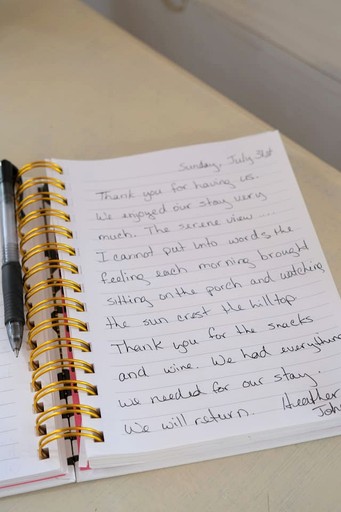 Sunday, July 31st
Thank you for having us.
We enjoyed our stay very
much. The serene view ....
I cannot put into words the
feeling each morning brought
sitting on the porch and watching
the sun crest the hilltop
Thank you for the snacks
and wine. We had everything
we needed for our stay.
We will return. Heather